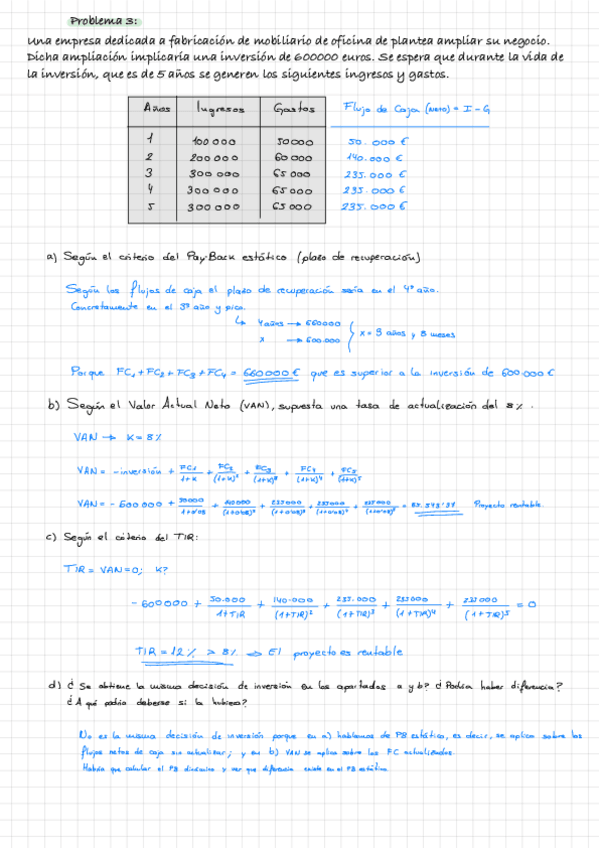 Problema 3:
Una empresa dedicada a fabricación de mobiliario de oficina de plantea ampliar su negocio.
Dicha ampliación implicaría una inversión de 600000 euros. Se espera que durante la vida de
la inversión, que es de 5 años se generen los siguientes ingresos y gastos.
Años Ingresos Gastos Flujo de Caja (Neto) = I - G
1 100 000 50000 50.000 €
2 200 000 60 000 140.000 €
3 300 000 65 000 235.000 €
4 300 000 65 000 235.000 €
5 300 000 65 000 235.000 €
a) Según el criterio del Pay-Back estático (plazo de recuperación)
Según los flujos de caja el plazo de recuperación sería en el 4º año.
Concretamente en el 3º año y pico.
↳ 4 años → 660000
x → 600.000
x = 3 años y 8 meses
Porque FC1 + FC2 + FC3 + FC4 = 660000 € que es superior a la inversión de 600.000 €
b) Según el Valor Actual Neto (VAN), supuesta una tasa de actualización del 8%.
VAN → K = 8%
VAN = - inversión + FC1/(1+K) + FC2/(1+K)² + FC3/(1+K)³ + FC4/(1+K)⁴ + FC5/(1+K)⁵
VAN = - 600000 + 50000/(1+0'08) + 140000/(1+0'08)² + 235000/(1+0'08)³ + 235000/(1+0'08)⁴ + 235000/(1+0'08)⁵ = Proyecto rentable.
c) Según el criterio del TIR:
TIR = VAN=0; K?
- 600000 + 50.000/(1+TIR) + 140.000/(1+TIR)² + 235.000/(1+TIR)³ + 235000/(1+TIR)⁴ + 235000/(1+TIR)⁵ = 0
TIR = 12% > 8% ⇒ El proyecto es rentable
d) ¿Se obtiene la misma decisión de inversión en los apartados a y b? ¿Podría haber diferencia?
¿A qué podría deberse si la hubiera?
No es la misma decisión de inversión porque en a) hablamos de PB estático, es decir, se aplica sobre los
flujos netos de caja sin actualizar; y en b) VAN se aplica sobre los FC actualizados.
Habría que calcular el PB dinámico y ver que diferencia existe en el PB estático.